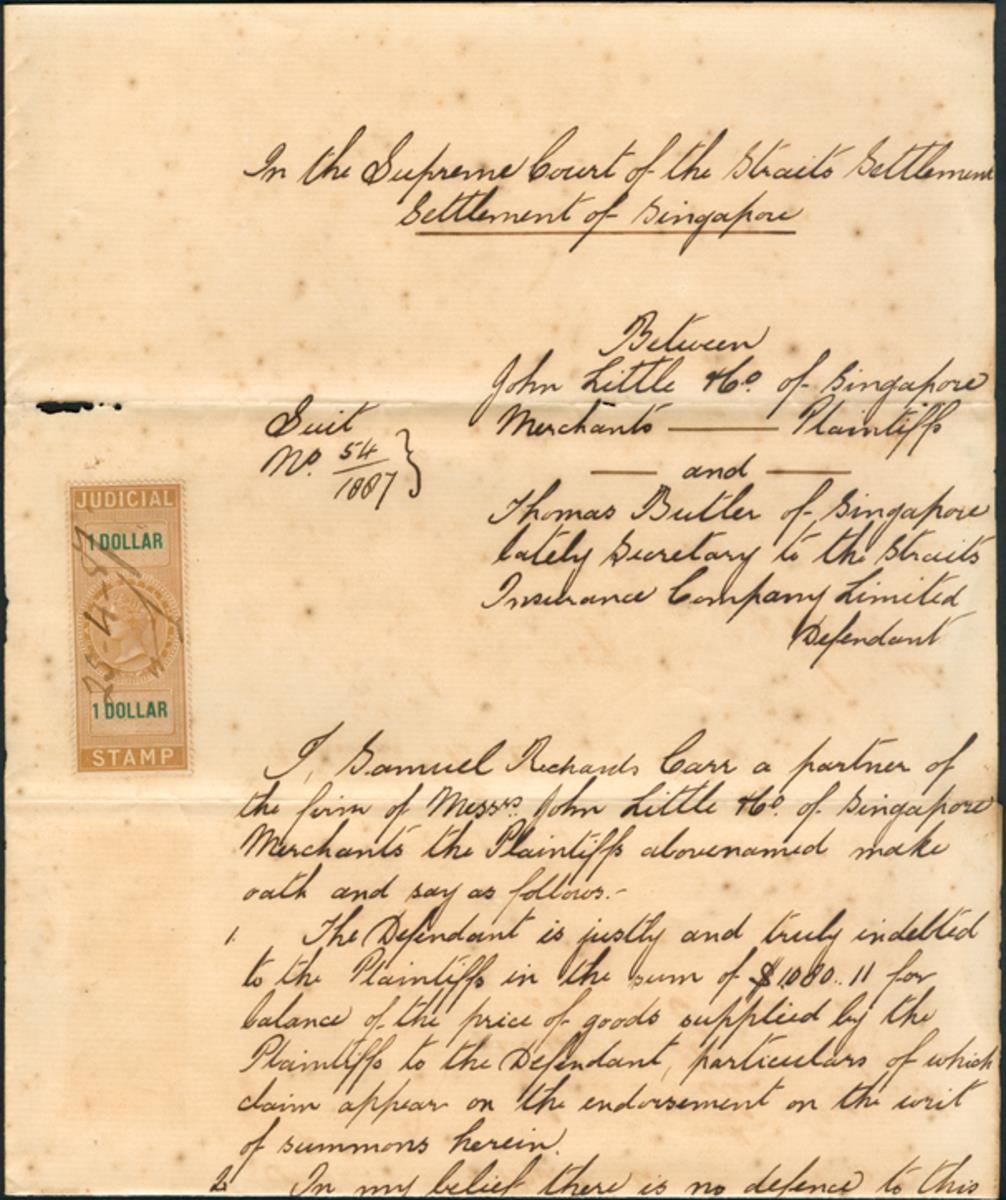 In the Supreme Court of the Straits Settlement
Settlement of Singapore
Between
John Little & Co. of Singapore
Merchants — Plaintiffs
Suit
No. 54/1887 }
— and —
Thomas Butler of Singapore
lately Secretary to the Straits
Insurance Company Limited
Defendant
JUDICIAL
1 DOLLAR
25-4-87
1 DOLLAR
STAMP
I, Samuel Richards Carr a partner of
the firm of Messrs. John Little & Co. of Singapore
Merchants the Plaintiffs abovenamed make
oath and say as follows.-
1. The Defendant is justly and truly indebted
to the Plaintiffs in the sum of $1080..11 for
balance of the price of goods supplied by the
Plaintiffs to the Defendant, particulars of which
claim appear on the endorsement on the writ
of summons herein.
2. In my belief there is no defence to this